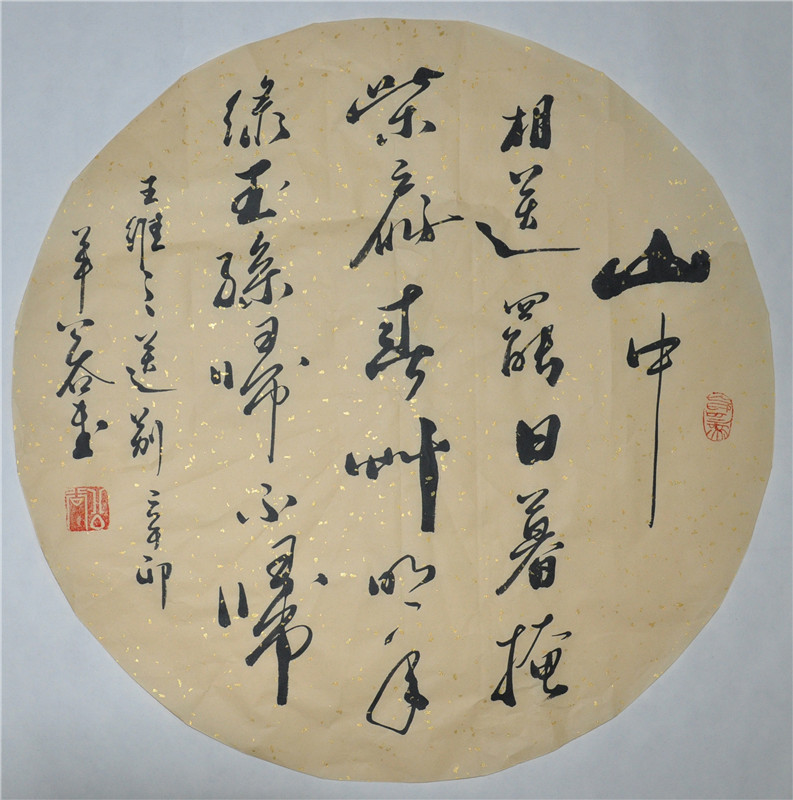 山中
相送罷日暮掩
柴扉春艸明年
綠王孫歸不歸
王維之送別 辛卯
羊 公書